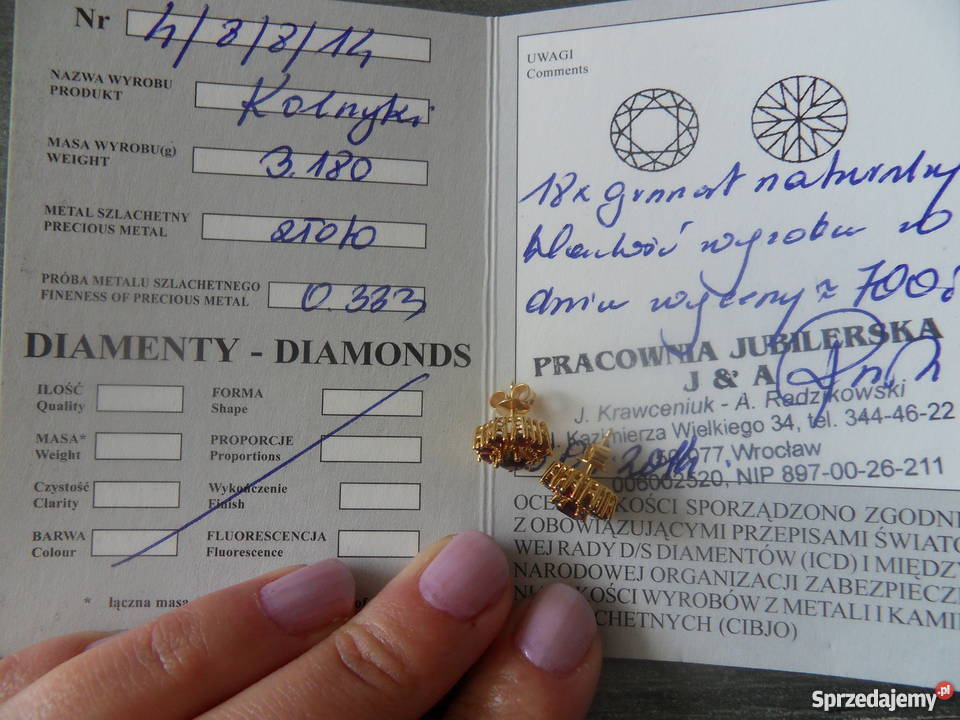 Nr 4/8/8/14
NAZWA WYROBU
PRODUKT
Kolczyki
MASA WYROBU(g)
WEIGHT
3.180
METAL SZLACHETNY
PRECIOUS METAL
złoto
PRÓBA METALU SZLACHETNEGO
FINENESS OF PRECIOUS METAL
0.333
DIAMENTY - DIAMONDS
ILOŚĆ
Quality
FORMA
Shape
MASA*
Weight
PROPORCJE
Proportions
Czystość
Clarity
Wykończenie
Finish
BARWA
Colour
FLUORESCENCJA
Fluorescence
* łączna masa
UWAGI
Comments
18x granat naturalny
Wartość wyrobu w
dniu wyceny ≈ 700
PRACOWNIA JUBILERSKA
J & A
J. Krawceniuk - A. Radzikowski
Kazimierza Wielkiego 34, tel. 344-46-22
077, Wrocław
006002520, NIP 897-00-26-211
KOŚCI SPORZĄDZONO ZGODNI
Z OBOWIĄZUJĄCYMI PRZEPISAMI ŚWIATO
WEJ RADY D/S DIAMENTÓW (ICD) I MIĘDZY
NARODOWEJ ORGANIZACJI ZABEZPIECZE
KOŚCI WYROBÓW Z METALI I KAMIE
CHETNYCH (CIBJO)
Sprzedajemy.pl